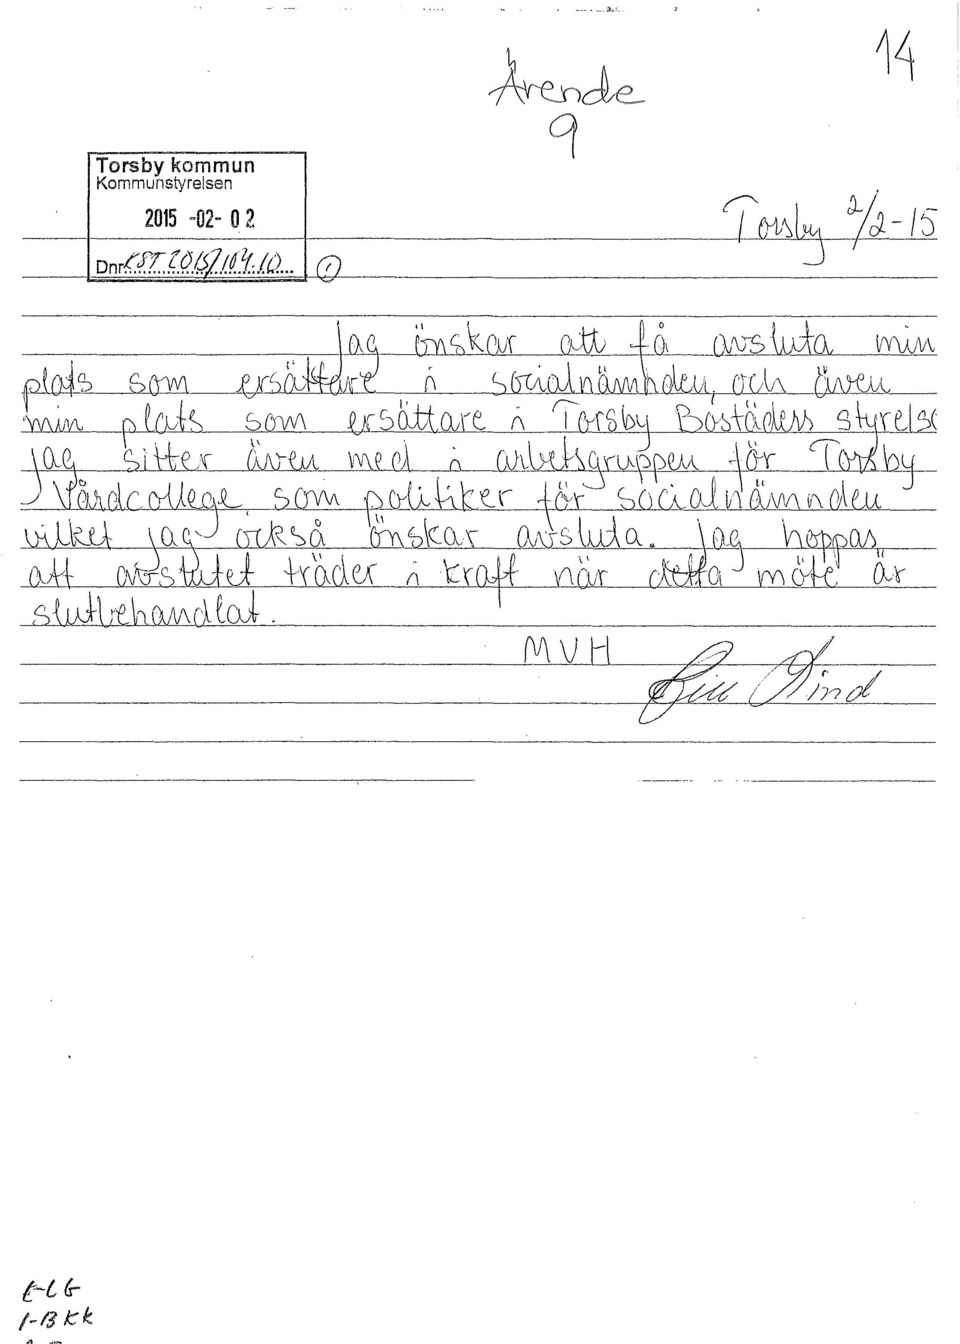 14
Ärende
9
Torsby kommun
Kommunstyrelsen
2015 -02- 02
Dnr KST 2015/104.10
1
Torsby 2/2-15
Jag önskar att få avsluta min
plats som ersättare i socialnämnden, och även
min plats som ersättare i Torsby Bostäders styrelse
Jag sitter även med i arbetsgruppen för Torsby
Vårdcollege som politiker för socialnämnden
vilket jag också önskar avsluta. Jag hoppas
att avslutet träder i kraft när detta möte är
slutbehandlat.
MVH
Lind
E-LG
1-BKK